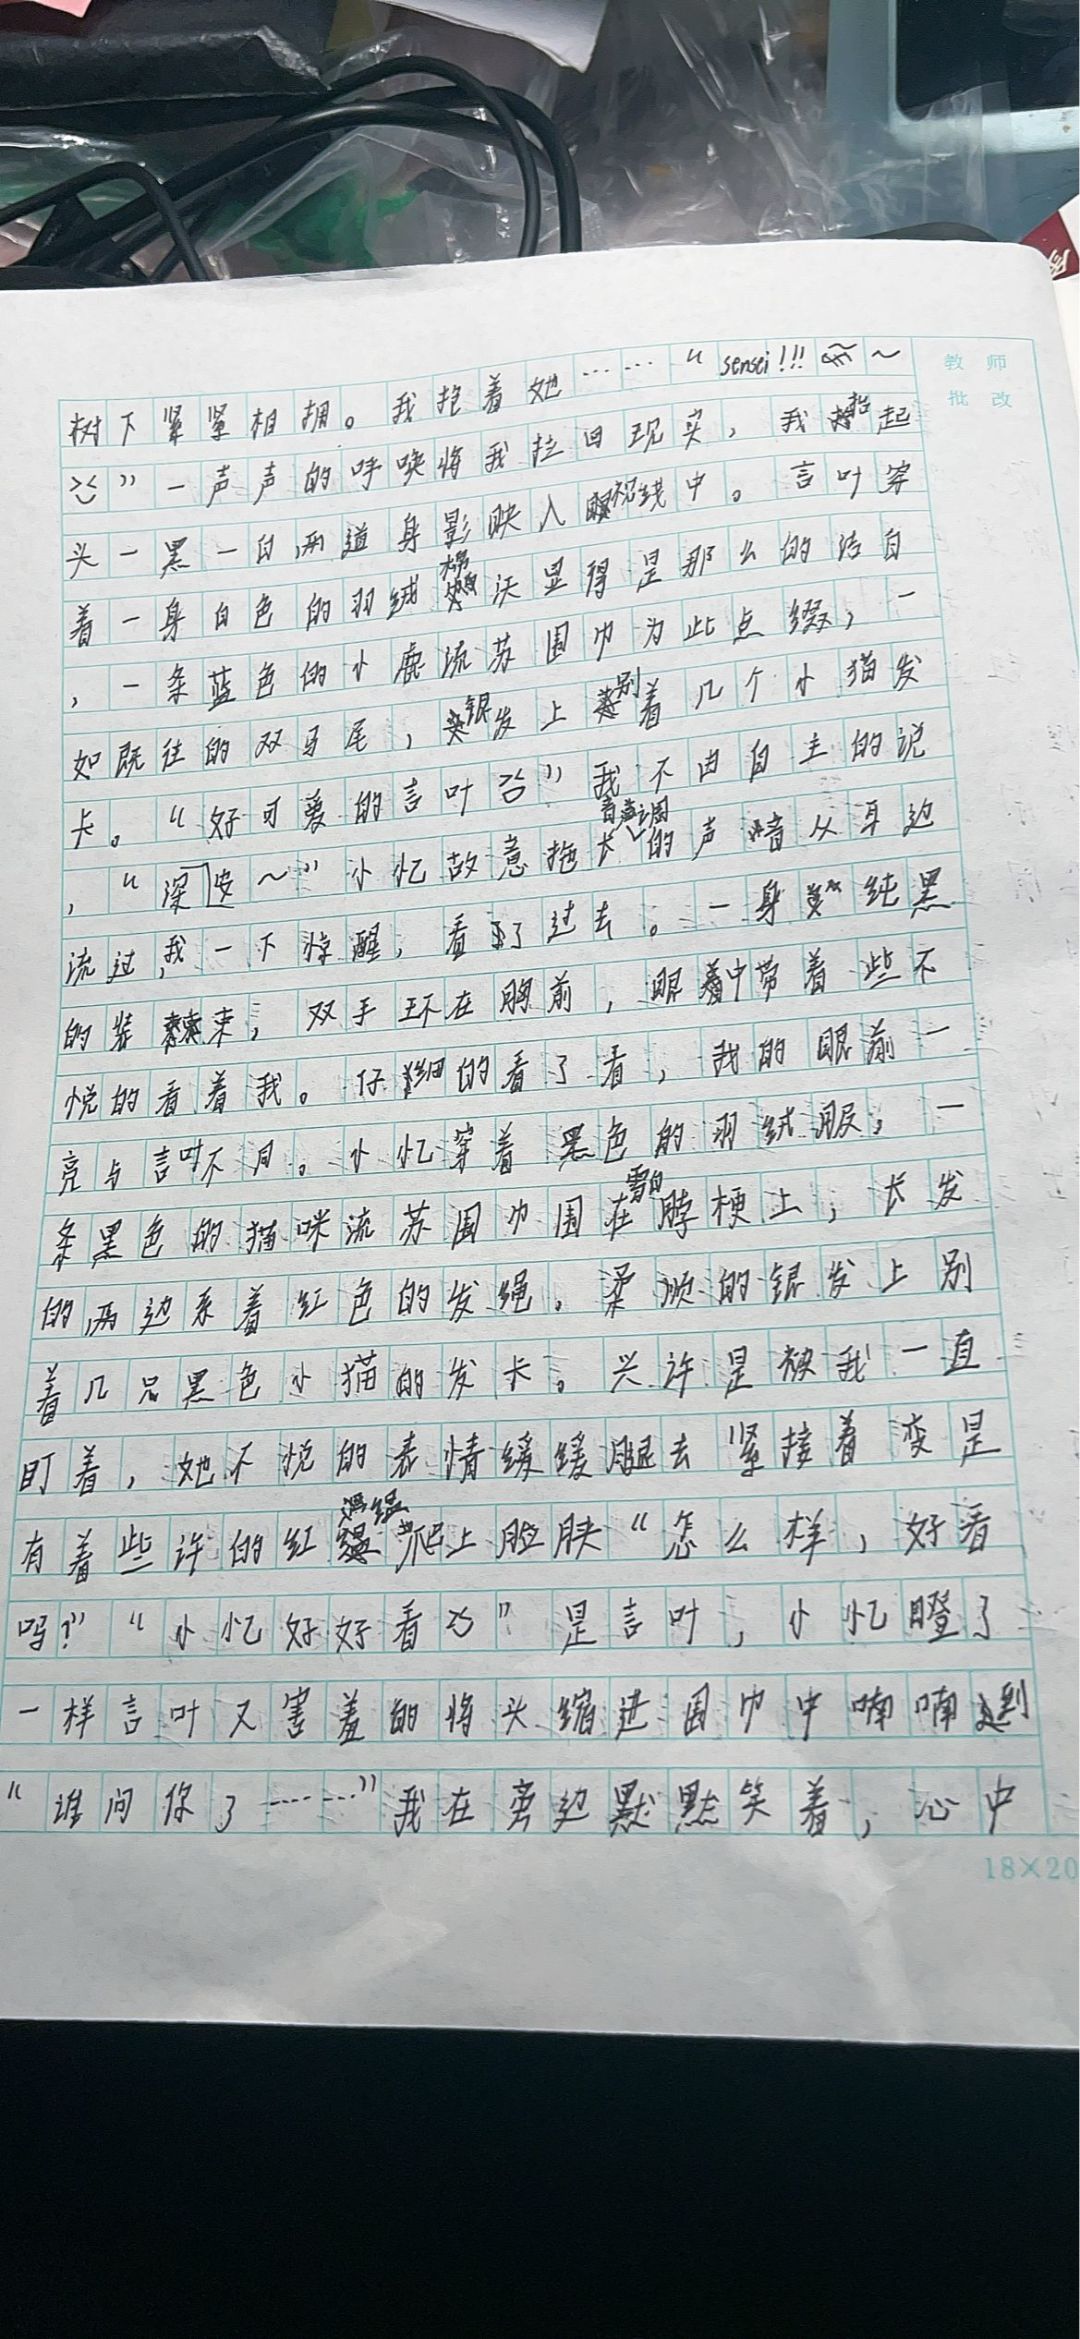 教 师
批 改
树下紧紧相拥。我抱着她……“sensei!!! ～
”一声声的呼唤将我拉回现实，我抬起
头一黑一白两道身影映入视线中。言叶穿
着一身白色的羽绒棉沃显得是那么的洁白
，一条蓝色的小鹿流苏围巾为此点缀，一
如既往的双马尾，银发上别着几个小猫发
卡。“好可爱的言叶”我不由自主的说
，“深～”小忆故意拖长音调的声音从耳边
流过，我一下惊醒，看了过去。一身纯黑
的装束，双手环在胸前，眼中带着些不
悦的看着我。仔细的看了看，我的眼前一
亮与言叶不同。小忆穿着黑色的羽绒服，一
条黑色的猫咪流苏围巾围在雪白脖梗上，长发
的两边系着红色的发绳。柔顺的银发上别
着几只黑色小猫的发卡。兴许是被我一直
盯着，她不悦的表情缓缓腿去紧接着变是
有着些许的红温爬上脸肤“怎么样，好看
吗?”“小忆好好看”是言叶，小忆瞪了
一样言叶又害羞的将头缩进围巾中喃喃到
“谁问你了……”我在旁边默默笑着，心中
18×20